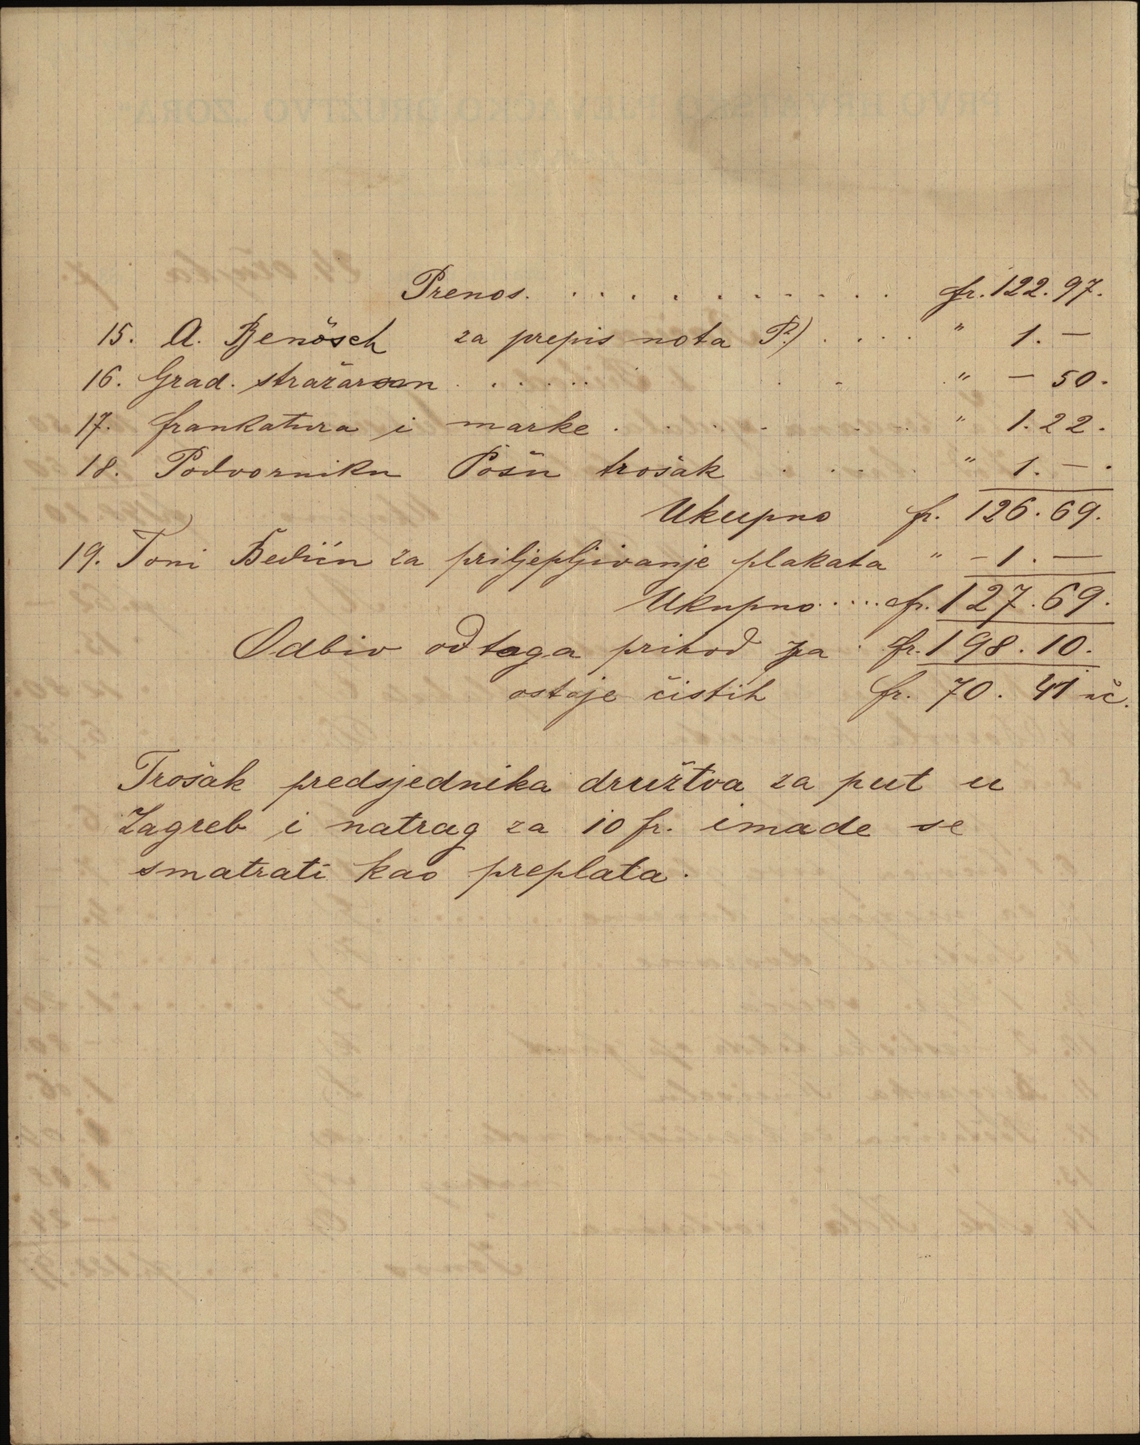 Prenos. . . . . . . . . . . . fr. 122. 97.
15. A. Benösch za prepis nota P.) . . . . " 1. —
16. Grad. stražarom . . . . . . . . " — 50.
17. frankatura i marke . . . . . . " 1. 22.
18. Podvorniku Pošn trošak . . . . " 1. — .
Ukupno fr. 126. 69.
19. Toni za priljepljivanje plakata " — 1. —
Ukupno . . . . . fr. 127. 69.
Odbiv od toga prihod za fr. 198. 10.
ostaje čistih fr. 70. 41 nč.
Trošak predsjednika družtva za put u
Zagreb i natrag za 10 fr. imade se
smatrati kao preplata.